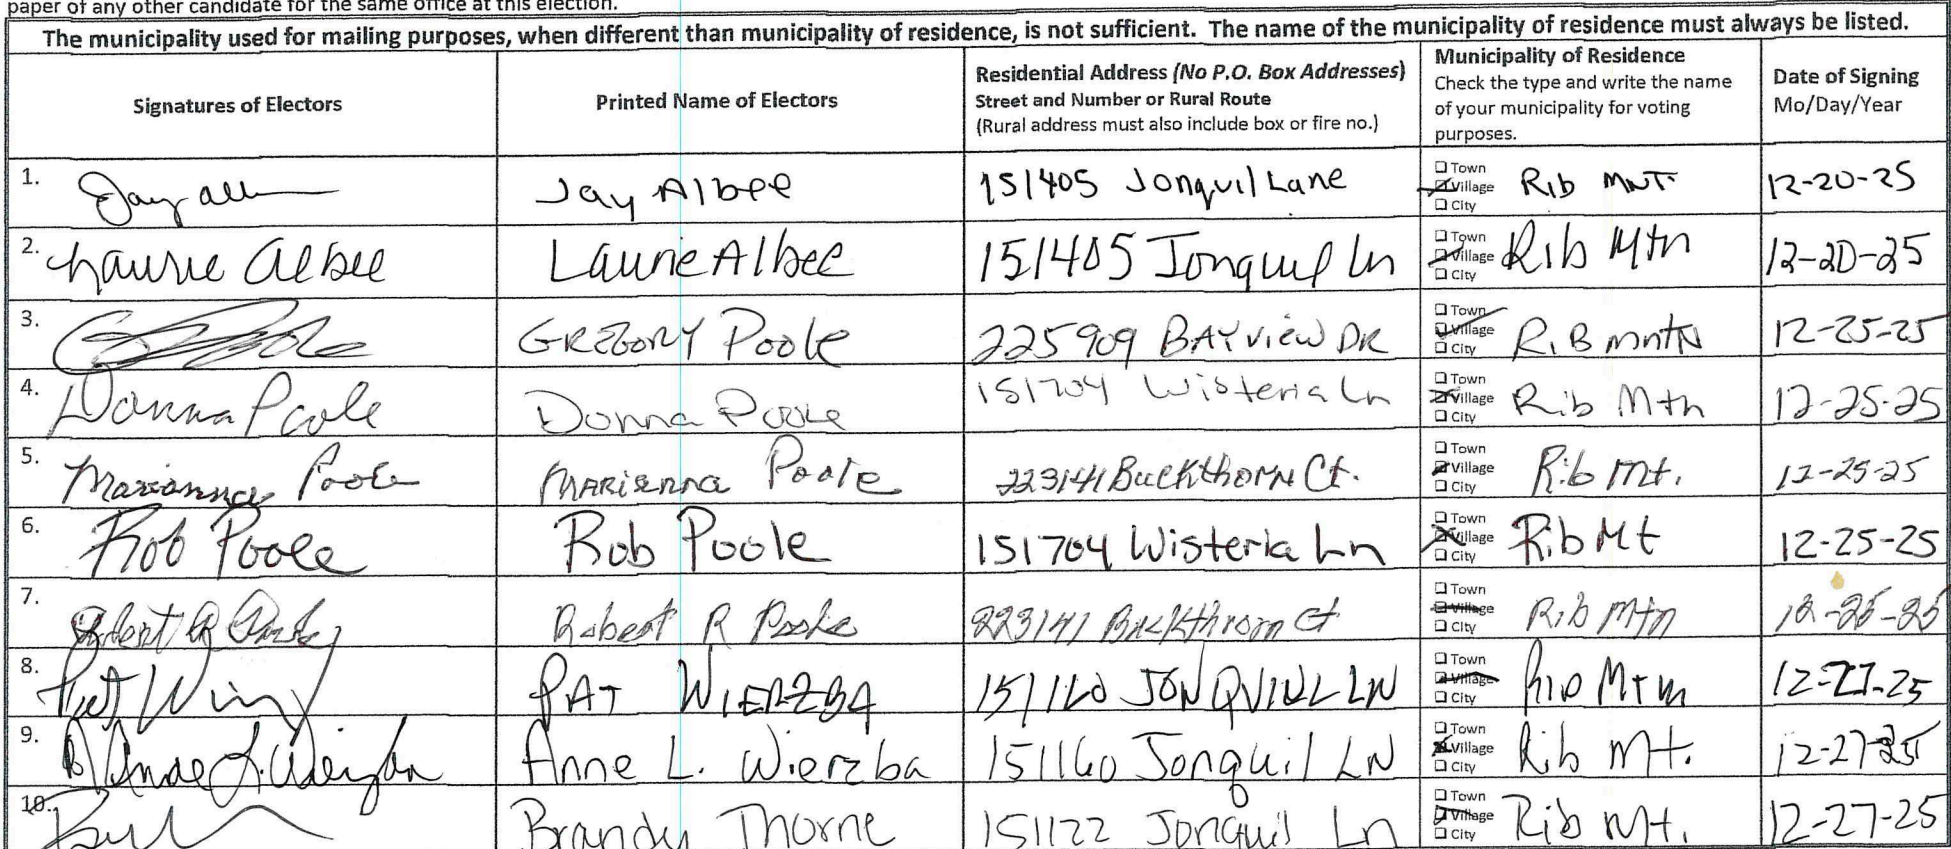 paper of any other candidate for the same office at this election.
The municipality used for mailing purposes, when different than municipality of residence, is not sufficient. The name of the municipality of residence must always be listed.
Signatures of Electors
Printed Name of Electors
Residential Address (No P.O. Box Addresses)
Street and Number or Rural Route
(Rural address must also include box or fire no.)
Municipality of Residence
Check the type and write the name
of your municipality for voting
purposes.
Date of Signing
Mo/Day/Year
1. Jay Albee 151405 Jonquil Lane Town Village City Rib MNT. 12-20-25
2. Laurie Albee Laurie Albee 151405 Jonquil Ln Town Village City Rib Mtn 12-20-25
3. GREGORY Poole 225909 BAYview DR Town Village City RiB mntN 12-25-25
4. Donna Poole Donna Poole 151704 Wisteria Ln Town Village City Rib Mtn 12-25-25
5. Marianna Poole MARiANNA Poole 223141 BuckthorN Ct. Town Village City Rib Mt. 12-25-25
6. Rob Poole Rob Poole 151704 Wisteria Ln Town Village City Rib Mt 12-25-25
7. Robert R Poole Robert R Poole 223141 Buckthrorn Ct Town Village City Rib Mtn 12-25-25
8. PAT WIERZBA 151160 JONQUIL LN Town Village City Rib Mtn 12-27-25
9. Anne L. Wierzba Anne L. Wierzba 151160 Jonquil LN Town Village City Rib Mt. 12-27-25
10. Brandy Thorne 151122 Jonquil Ln Town Village City Rib Mt. 12-27-25